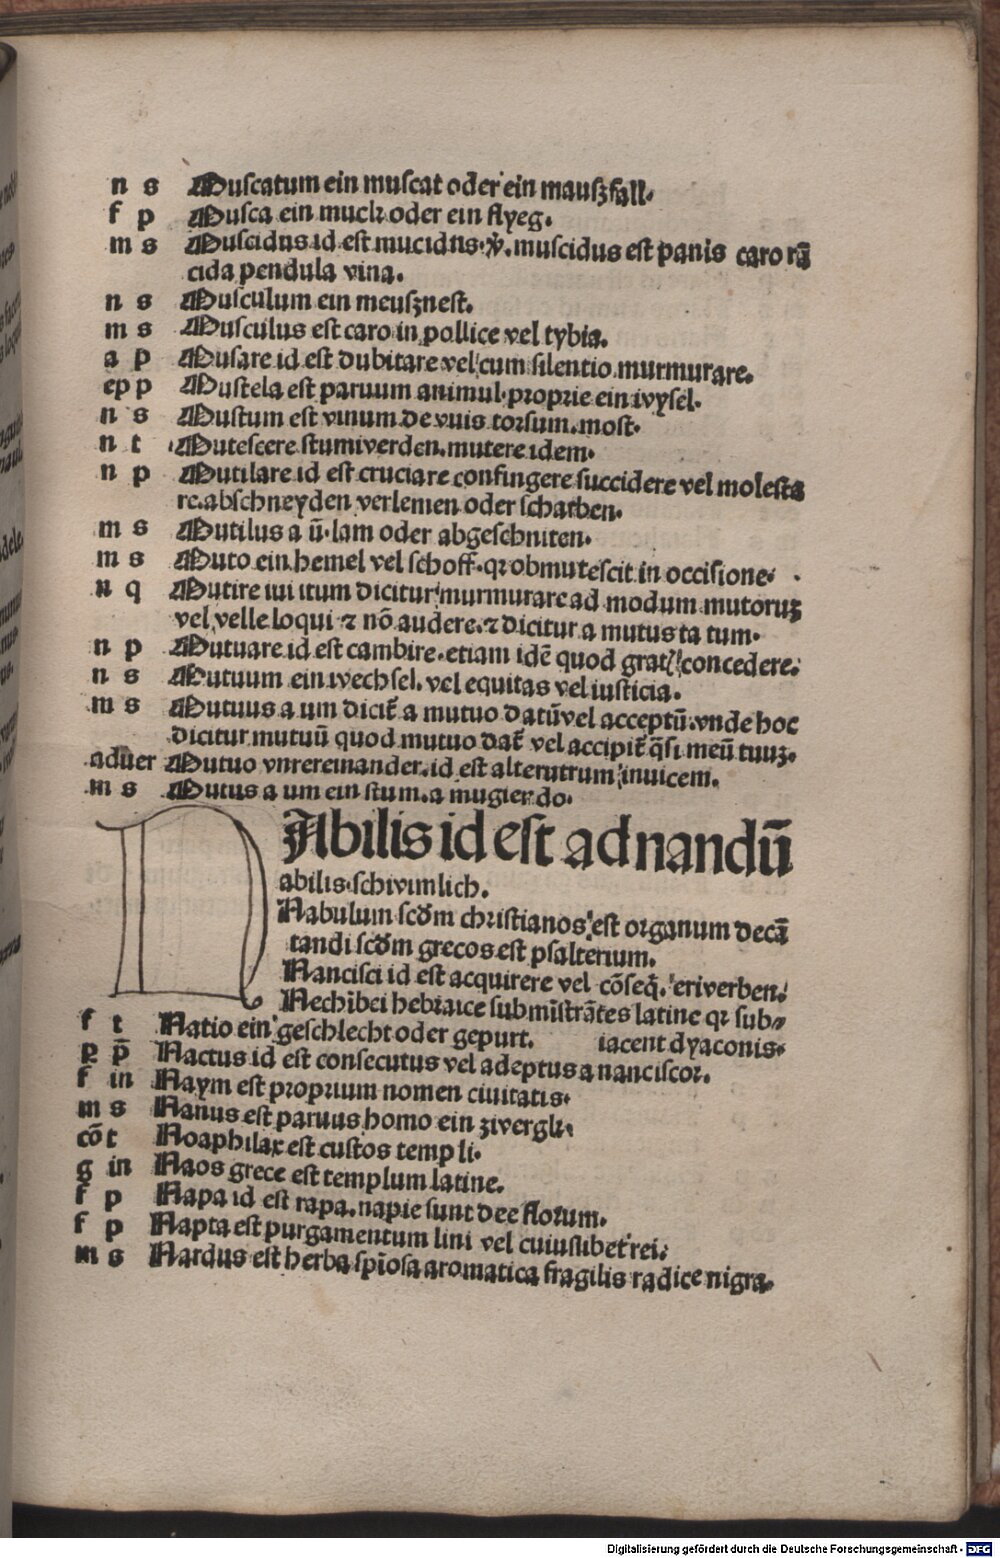 n s Muscatum ein muscat oder ein mauſzfall.
f p Musca ein muck oder ein flyeg.
m s Muscidus id est mucidus. muscidus est panis caro rā
cida pendula vina.
n s Musculum ein meuſznest.
m s Musculus est caro in pollice vel tybia.
a p Musare id est dubitare vel cum silentio murmurare.
ep p Mustela est paruum animul. proprie ein wysel.
n s Mustum est vinum de vuis torsum. most.
n t Mutescere stumwerden. mutere idem.
n p Mutilare id est cruciare confingere succidere vel molesta
re. abschneyden verlemen oder schatben.
m s Mutilus a ū. lam oder abgeschniten.
m s Muto ein hemel vel schoff. qꝛ obmutescit in occisione.
n q Mutire iui itum dicitur murmurare ad modum mutoruꝫ
vel velle loqui ⁊ nō audere. ⁊ dicitur a mutus ta tum.
n p Mutuare id est cambire. etiam idē quod gratꝭ concedere.
n s Mutuum ein wechsel. vel equitas vel iusticia.
m s Mutuus a um dicit̃ a mutuo datū vel acceptū. vnde hoc
dicitur mutuū quod mutuo dat̃ vel accipit̃ q̄si meū tuuꝫ.
aduer Mutuo vnrereinander. id est alterutrum inuicem.
m s Mutus a um ein stum. a mugiendo.
NAbilis id est ad nandū
abilis. schwimlich.
Nabulum scdm christianos est organum decā
tandi scdm grecos est psalterium.
Nancisci id est acquirere vel cōseq̄. erwerben.
Nechibei hebraice submīstrātes latine qꝛ sub⸗
f t Natio ein geschlecht oder gepurt. iacent dyaconis.
p p̄ Nactus id est consecutus vel adeptus a nanciscor.
f in Naym est proprium nomen ciuitatis.
m s Nanus est paruus homo ein zwergli.
cō t Noaphilax est custos templi.
g in Naos grece est templum latine.
f p Napa id est rapa. napie sunt dee florum.
f p Napta est purgamentum lini vel cuiuslibet rei.
m s Nardus est herba spīosa aromatica fragilis radice nigra.
Digitalisierung gefördert durch die Deutsche Forschungsgemeinschaft - DFG